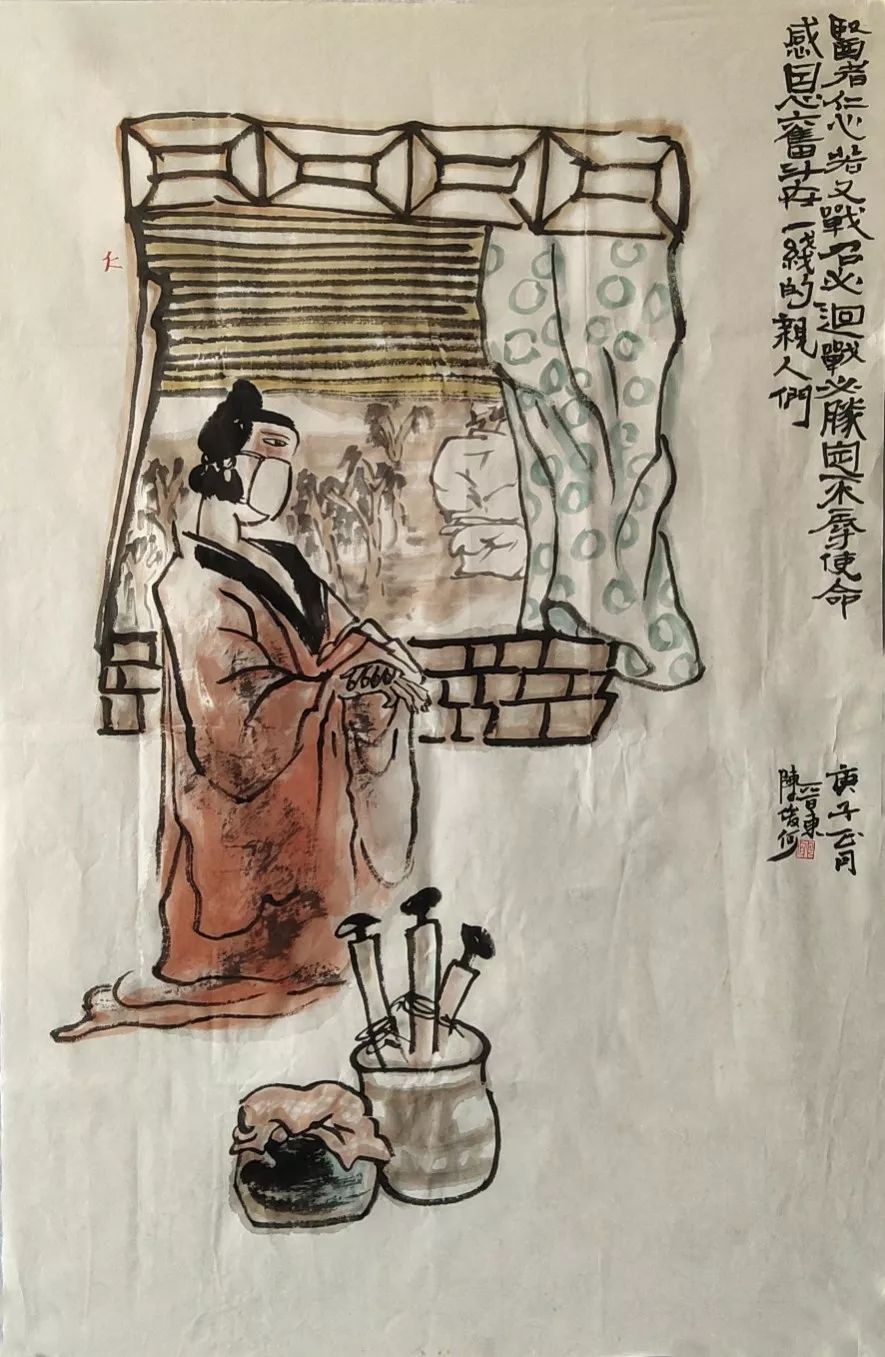 醫者仁心若又戰召必迴戰必勝定不辱使命
感恩奮斗在一綫的親人們
庚子正月
晉東